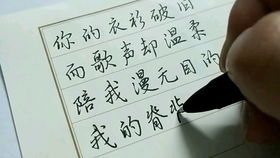 你的衣衫破旧
而歌声却温柔
陪我漫无目的
我的脊背